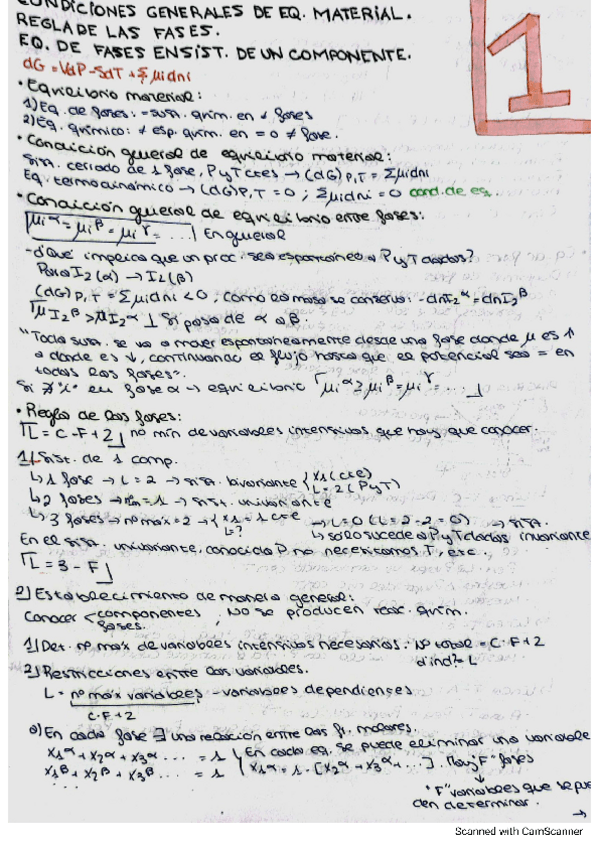 CONDICIONES GENERALES DE EQ. MATERIAL.
REGLA DE LAS FASES.
EQ. DE FASES EN SIST. DE UN COMPONENTE.
1
dG = VdP - SdT + Σ μidni
• Equilibrio material:
1) Eq. de fases: = sust. quím. en ≠ fases
2) Eq. químico: ≠ esp. quím. en = o ≠ fase.
• Condición general de equilibrio material:
Sist. cerrado de 1 fase, P y T ctes → (dG)P,T = Σμidni
Eq. termodinámico → (dG)P,T = 0 ; Σμidni = 0 cond. de eq.
• Condición general de equilibrio entre fases:
μi^α = μi^β = μi^γ = ... En general
- d'Qué implica que un proc. sea espontáneo a P y T dados?
Para I2(α) → I2(β)
(dG)P,T = Σμidni < 0 ; como la masa se conserva: -dnI2^α = dnI2^β
μI2^β > μI2^α Si pasa de α a β.
"Toda sust. se va a mover espontáneamente desde una fase donde μ es ↑
a donde es ↓, continuando el flujo hasta que el potencial sea = en
todas las fases".
Si ∄ "i" en fase α → equilibrio μi^α ≥ μi^β = μi^γ = ...
• Regla de las fases:
L = C - F + 2 no mín de variables intensivas que hay que conocer.
1) Sist. de 1 comp.
↳ 1 fase → L = 2 → sist. bivariante { x1 (cte) L = 2 (P y T)
↳ 2 fases → = 1 → sist. univariante
↳ 3 fases → nº máx = 2 → { x1 = 1 cte L? → L = 0 (L = 2 - 2 = 0) → sist.
↳ solo sucede a P y T dados invariante
En el sist. univariante, conocida P no necesitamos T, etc.
L = 3 - F
2) Establecimiento de manera general:
Conocer < componentes fases. ; No se producen reac. quím.
1) Det. nº máx de variables intensivas necesarias. Nº total = C·F + 2
d'ind? = L
2) Restricciones entre las variables.
L = nº máx variables - variables dependientes
C·F + 2
a) En cada fase ∃ una relación entre las fr. molares.
x1^α + x2^α + x3^α ... = 1 } En cada eq. se puede eliminar una variable
x1^β + x2^β + x3^β ... = 1 x1^α = 1 - [x2^α + x3^α + ...]. Hay "F" fases
...
↓
"F" variables que se pue
den determinar.
→
Scanned with CamScanner